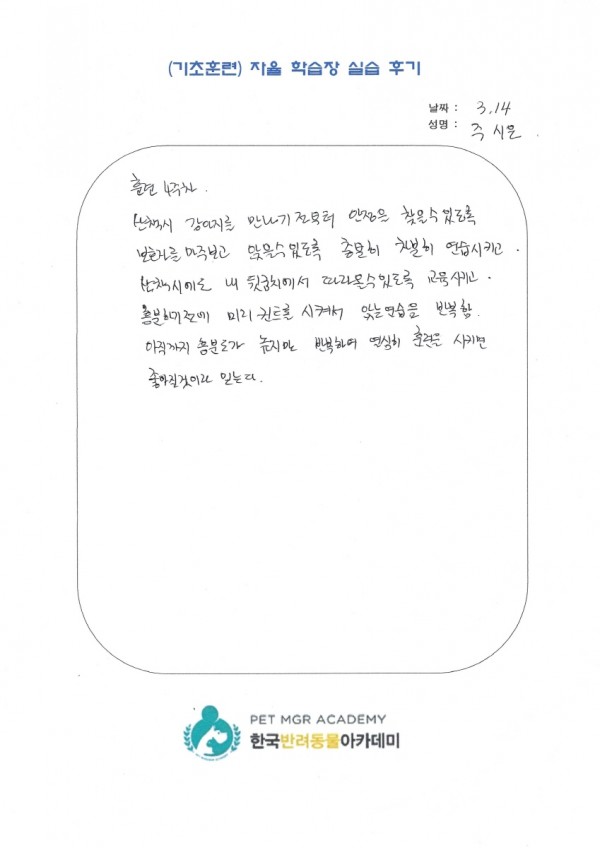 (기초훈련) 자율 학습장 실습 후기
날짜 : 3.14
성명 : 주 시은
훈련 4주차.
산책시 강아지를 만나기 전부터 안정을 찾을수있도록
보호자를 마주보고 앉을수있도록 충분히 차분히 연습시키고.
산책시에도 내 뒷꿈치에서 따라올수있도록 교육시키고.
흥분하기전에 미리 컨트롤 시켜서 앉는연습을 반복함.
아직까지 흥분도가 높지만 반복하여 열심히 훈련을 시키면
좋아질것이라 믿는다.
PET MGR ACADEMY
한국반려동물아카데미